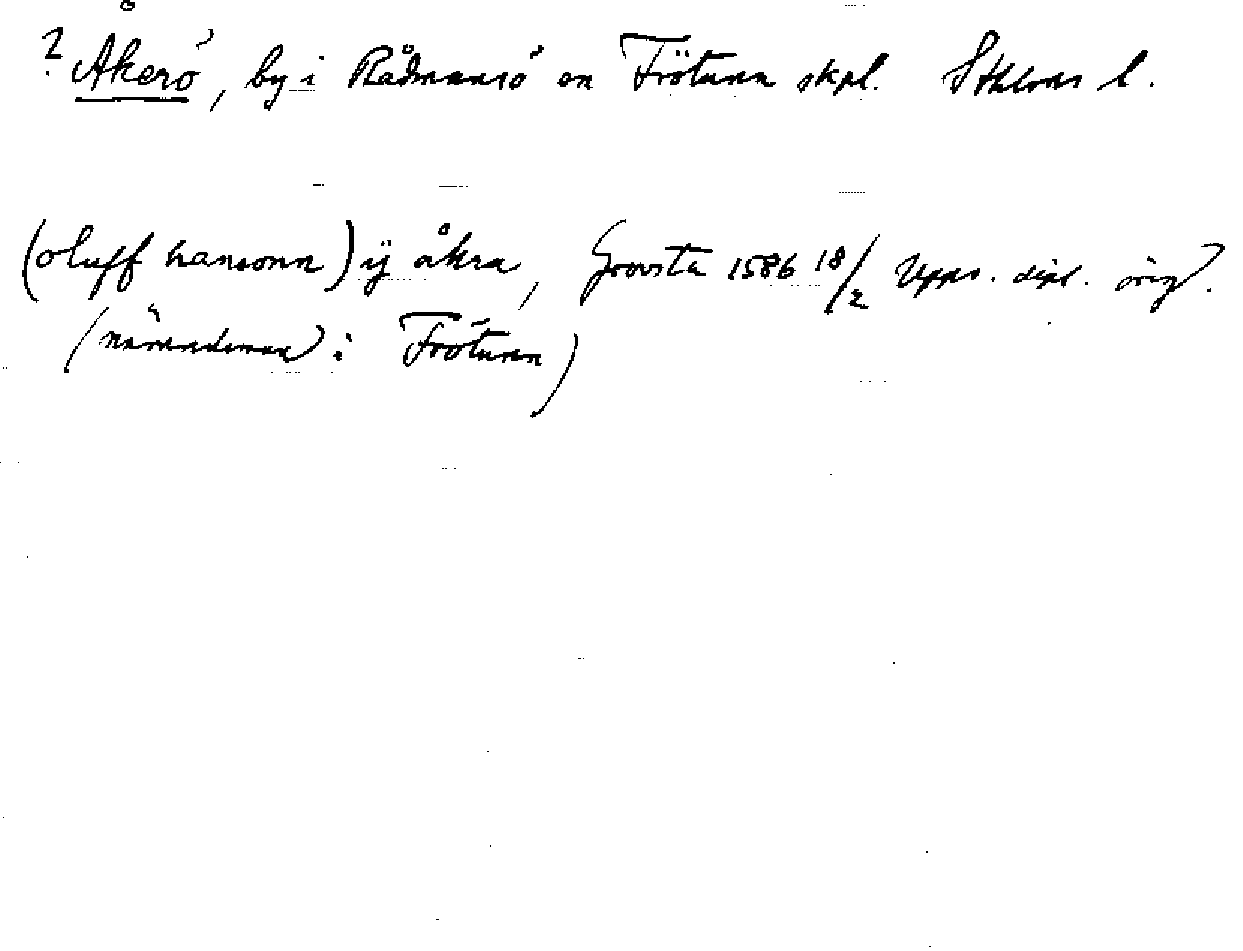 ? Åkerö, by i Rådmansö en Frötuna skpl. Sthlms l.
(oluff hansonn) ÿ åkra, 1586 18/2 Upps. dipl. orig.
(nämndeman i Frötuna)